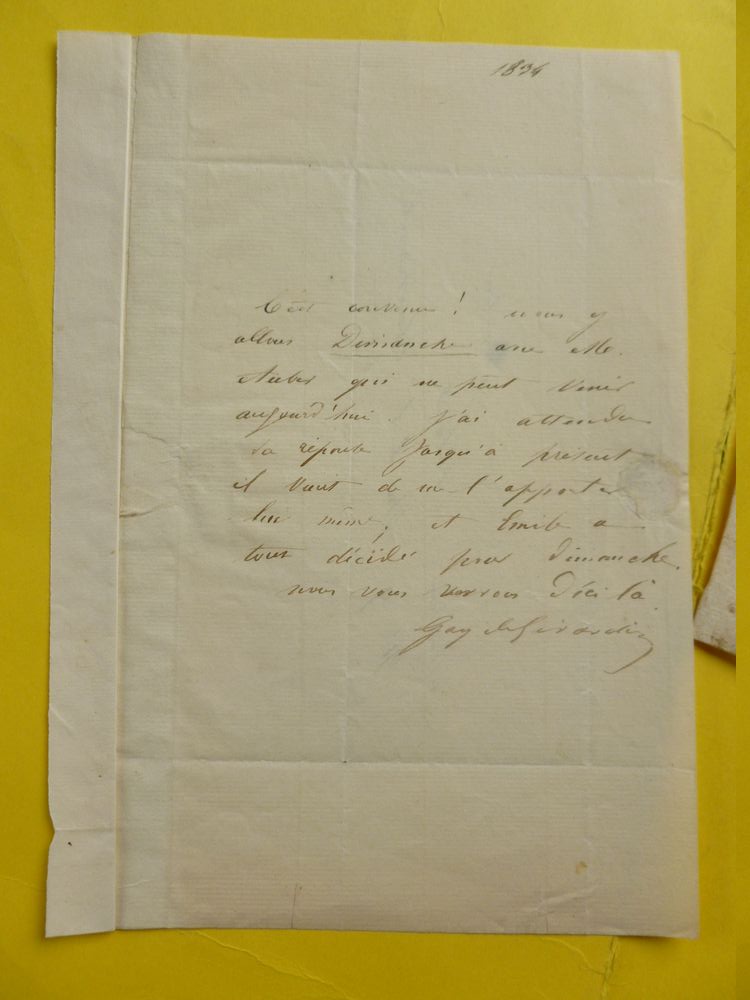 1834
C'est convenu! nous y
allons Dimanche avec Mr.
Auber qui ne peut venir
aujourd'hui. j'ai attendu
sa réponse jusqu'à présent
il vient de me l'apporter
lui même, et Emile a
tout décidé pour dimanche.
nous vous verrons d'ici là
Gay de Girardin